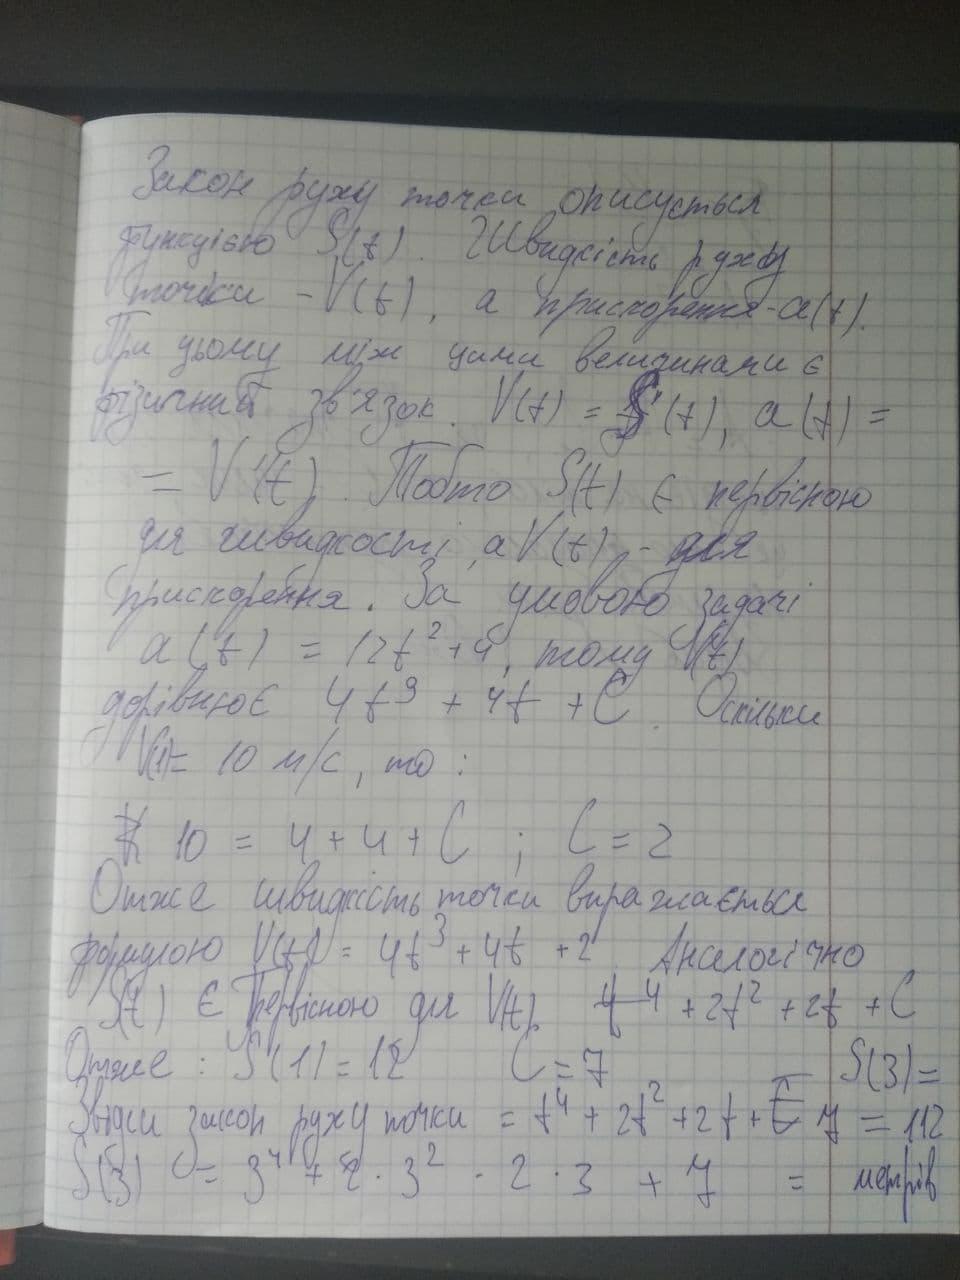 Закон руху точки описується
функцією S(t). Швидкість руху
точки - V(t), а прискорення - a(t).
При цьому між цими величинами є
фізичний зв'язок. V(t) = S'(t), a(t) =
= V'(t). Тобто S(t) є первісною
для швидкості, а V(t) - для
прискорення. За умовою задачі
a(t) = 12t² + 4, тому V(t)
дорівнює 4t³ + 4t + C. Оскільки
V(1) = 10 м/с, то:
10 = 4 + 4 + C ; C = 2
Отже швидкість точки виражається
формулою V(t) = 4t³ + 4t + 2. Аналогічно
S(t) є Первісною для V(t). t⁴ + 2t² + 2t + C
Отже: S(1) = 12 C = 7 S(3) =
Звідси закон руху точки = t⁴ + 2t² + 2t + 7 = 112
S(3) = 3⁴ + 2 · 3² · 2 · 3 + 7 = метрів